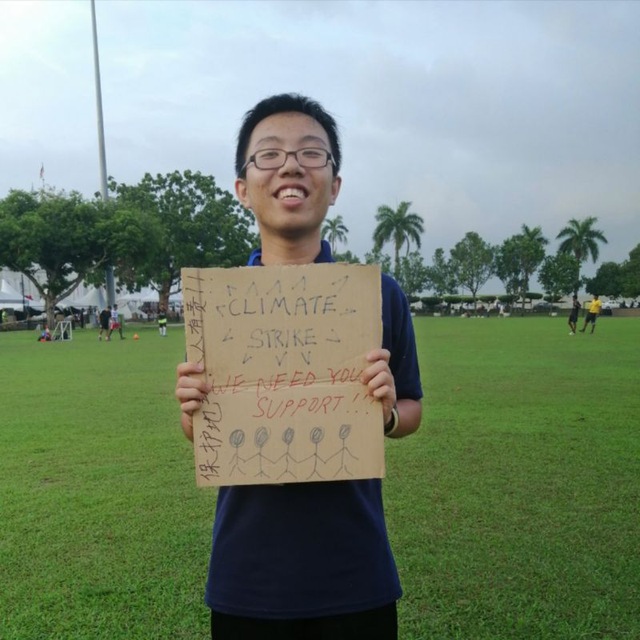 CLIMATE
STRIKE
WE NEED YOU
SUPPORT!!!
保护地